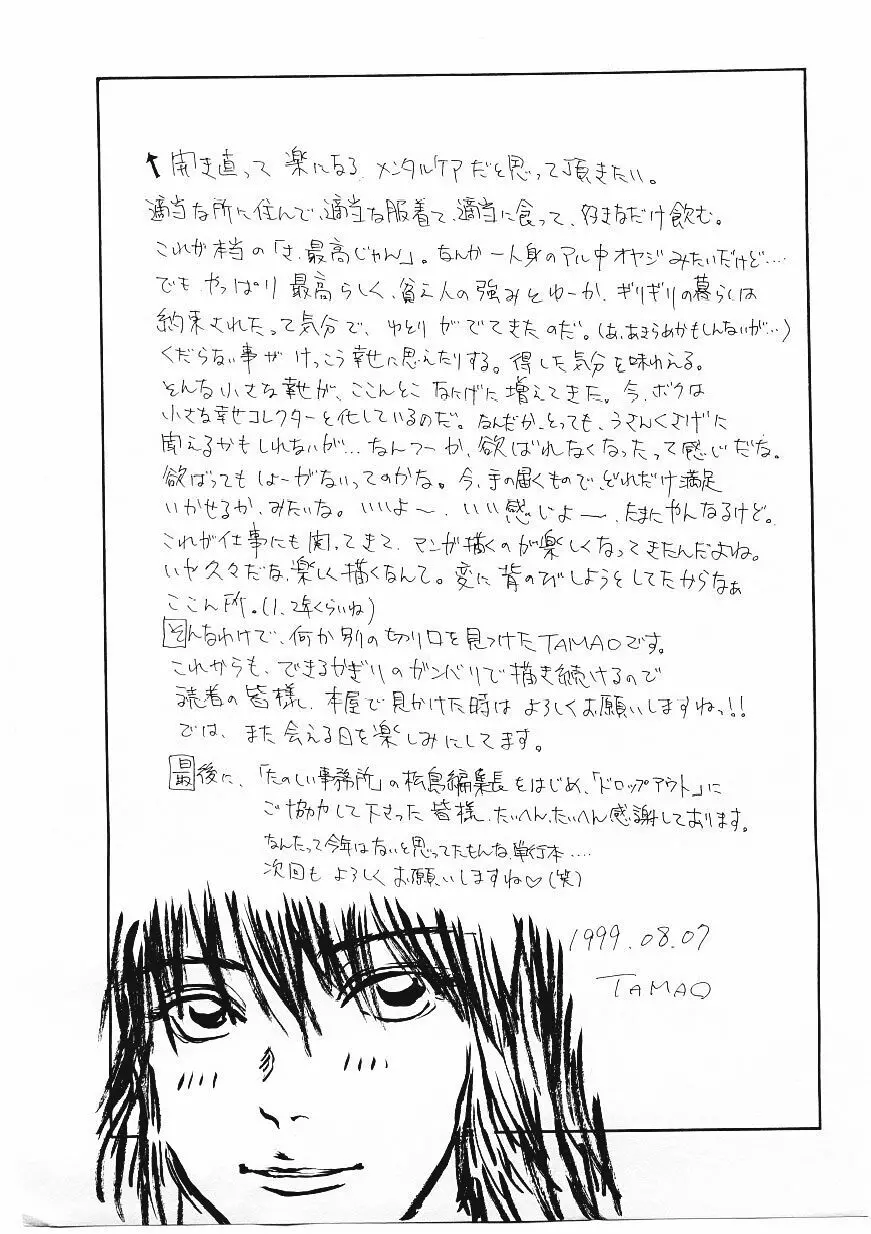 ↑開き直って 楽になる メンタルケアだと思って頂きたい。
適当な所に住んで、適当な服着て、適当に食って、好きなだけ飲む。
これが本当の「さ、最高じゃん」。なんか一人身のアル中オヤジみたいだけど‥‥
でも やっぱり 最高らしく、貧乏人の強みとゆーか、ギリギリの暮らしは
約束されたって気分で、ゆとりがでてきたのだ。(あ、あきらめかもしんないが…)
くだらない事が けっこう幸せに思えたりする。得した気分を味わえる。
そんな小さな幸せが、ここんとこ なにげに増えてきた。今、ボクは
小さな幸せコレクターと化しているのだ。なんだか、とっても、うさんくさげに
聞えるかもしれないが… なんつーか、欲ばれなくなったって感じだな。
欲ばってもしょーがないってのかな。今、手の届くもので、どれだけ満足
いかせるか、みたいな。いいよ〜、いい感じよ〜、たまにやんなるけど。
これが仕事にも関ってきて、マンガ描くのが楽しくなってきたんだよね。
いや久々だな、楽しく描くなんて。変に背のびしようとしてたからなぁ
ここん所。(1、2年くらいね)
そんなわけで、何か別の切り口を見つけたTAMAOです。
これからも、できるかぎりのガンバリで描き続けるので
読者の皆様、本屋で見かけた時は よろしくお願いしますねっ!!
では、また会える日を楽しみにしてます。
最後に、「たのしい事務所」の松島編集長をはじめ、「ドロップアウト」に
ご協力して下さった皆様、たいへん、たいへん感謝しております。
なんたって今年はないと思ってたもんな単行本‥‥
次回も よろしくお願いしますね♡(笑)
1999.08.07
TAMAO